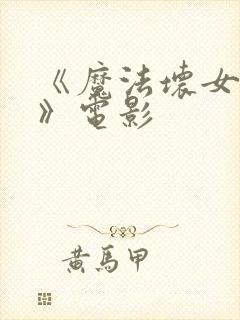 《魔法壞女
》電影
黃馬甲